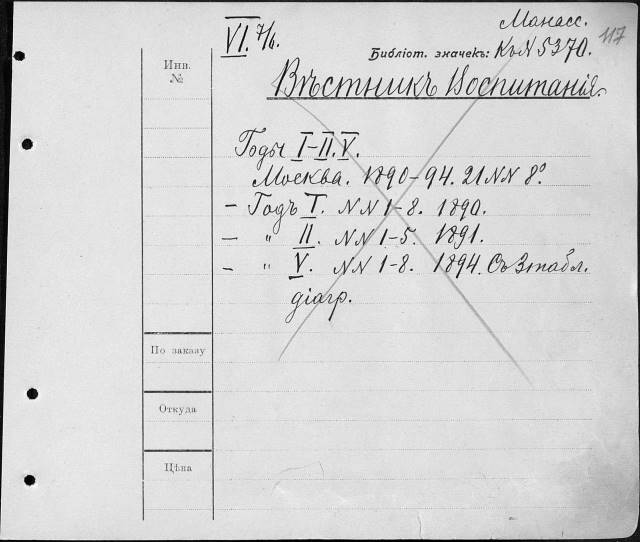 VI. 7/6.
Манасс.
117
Библіот. значекъ: КъN5370.
Инв.
№
Вѣстникъ Воспитанія.
Годы I–II. V.
Москва. 1890–94. 21 NN 8°
– Годъ I. NN 1–8. 1890.
– " II. NN 1–5. 1891.
– " V. NN 1–8. 1894. Съ 3 табл.
діагр.
По заказу
Откуда
Цѣна